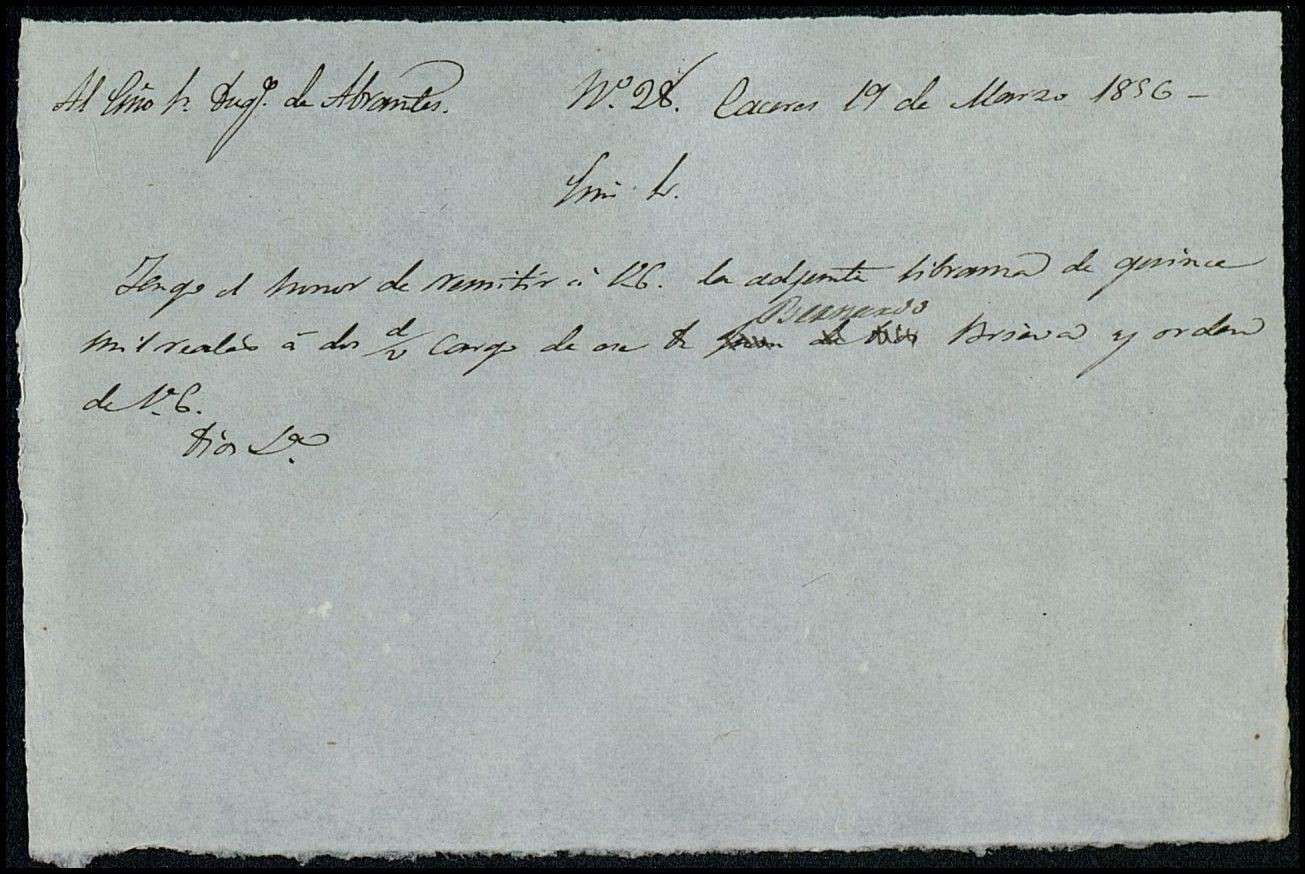 Al Exmo Sr. Duq.e de Abrantes. Nº 28. Caceres 19 de Marzo 1856 –
Exmo. Sr.
Tengo el honor de remitir á V.E. la adjunta libranza de quince
Bernardo
mil reales á dos d/v cargo de D. Brieva y orden
de V.E.
Dios &a.